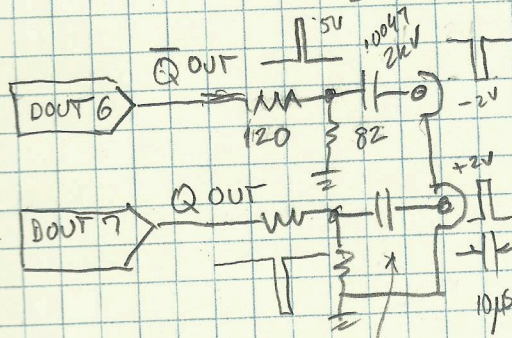 5V
.0047
2kV
Q̅ OUT
DOUT 6
120
82
-2V
+2V
Q OUT
DOUT 7
10µs